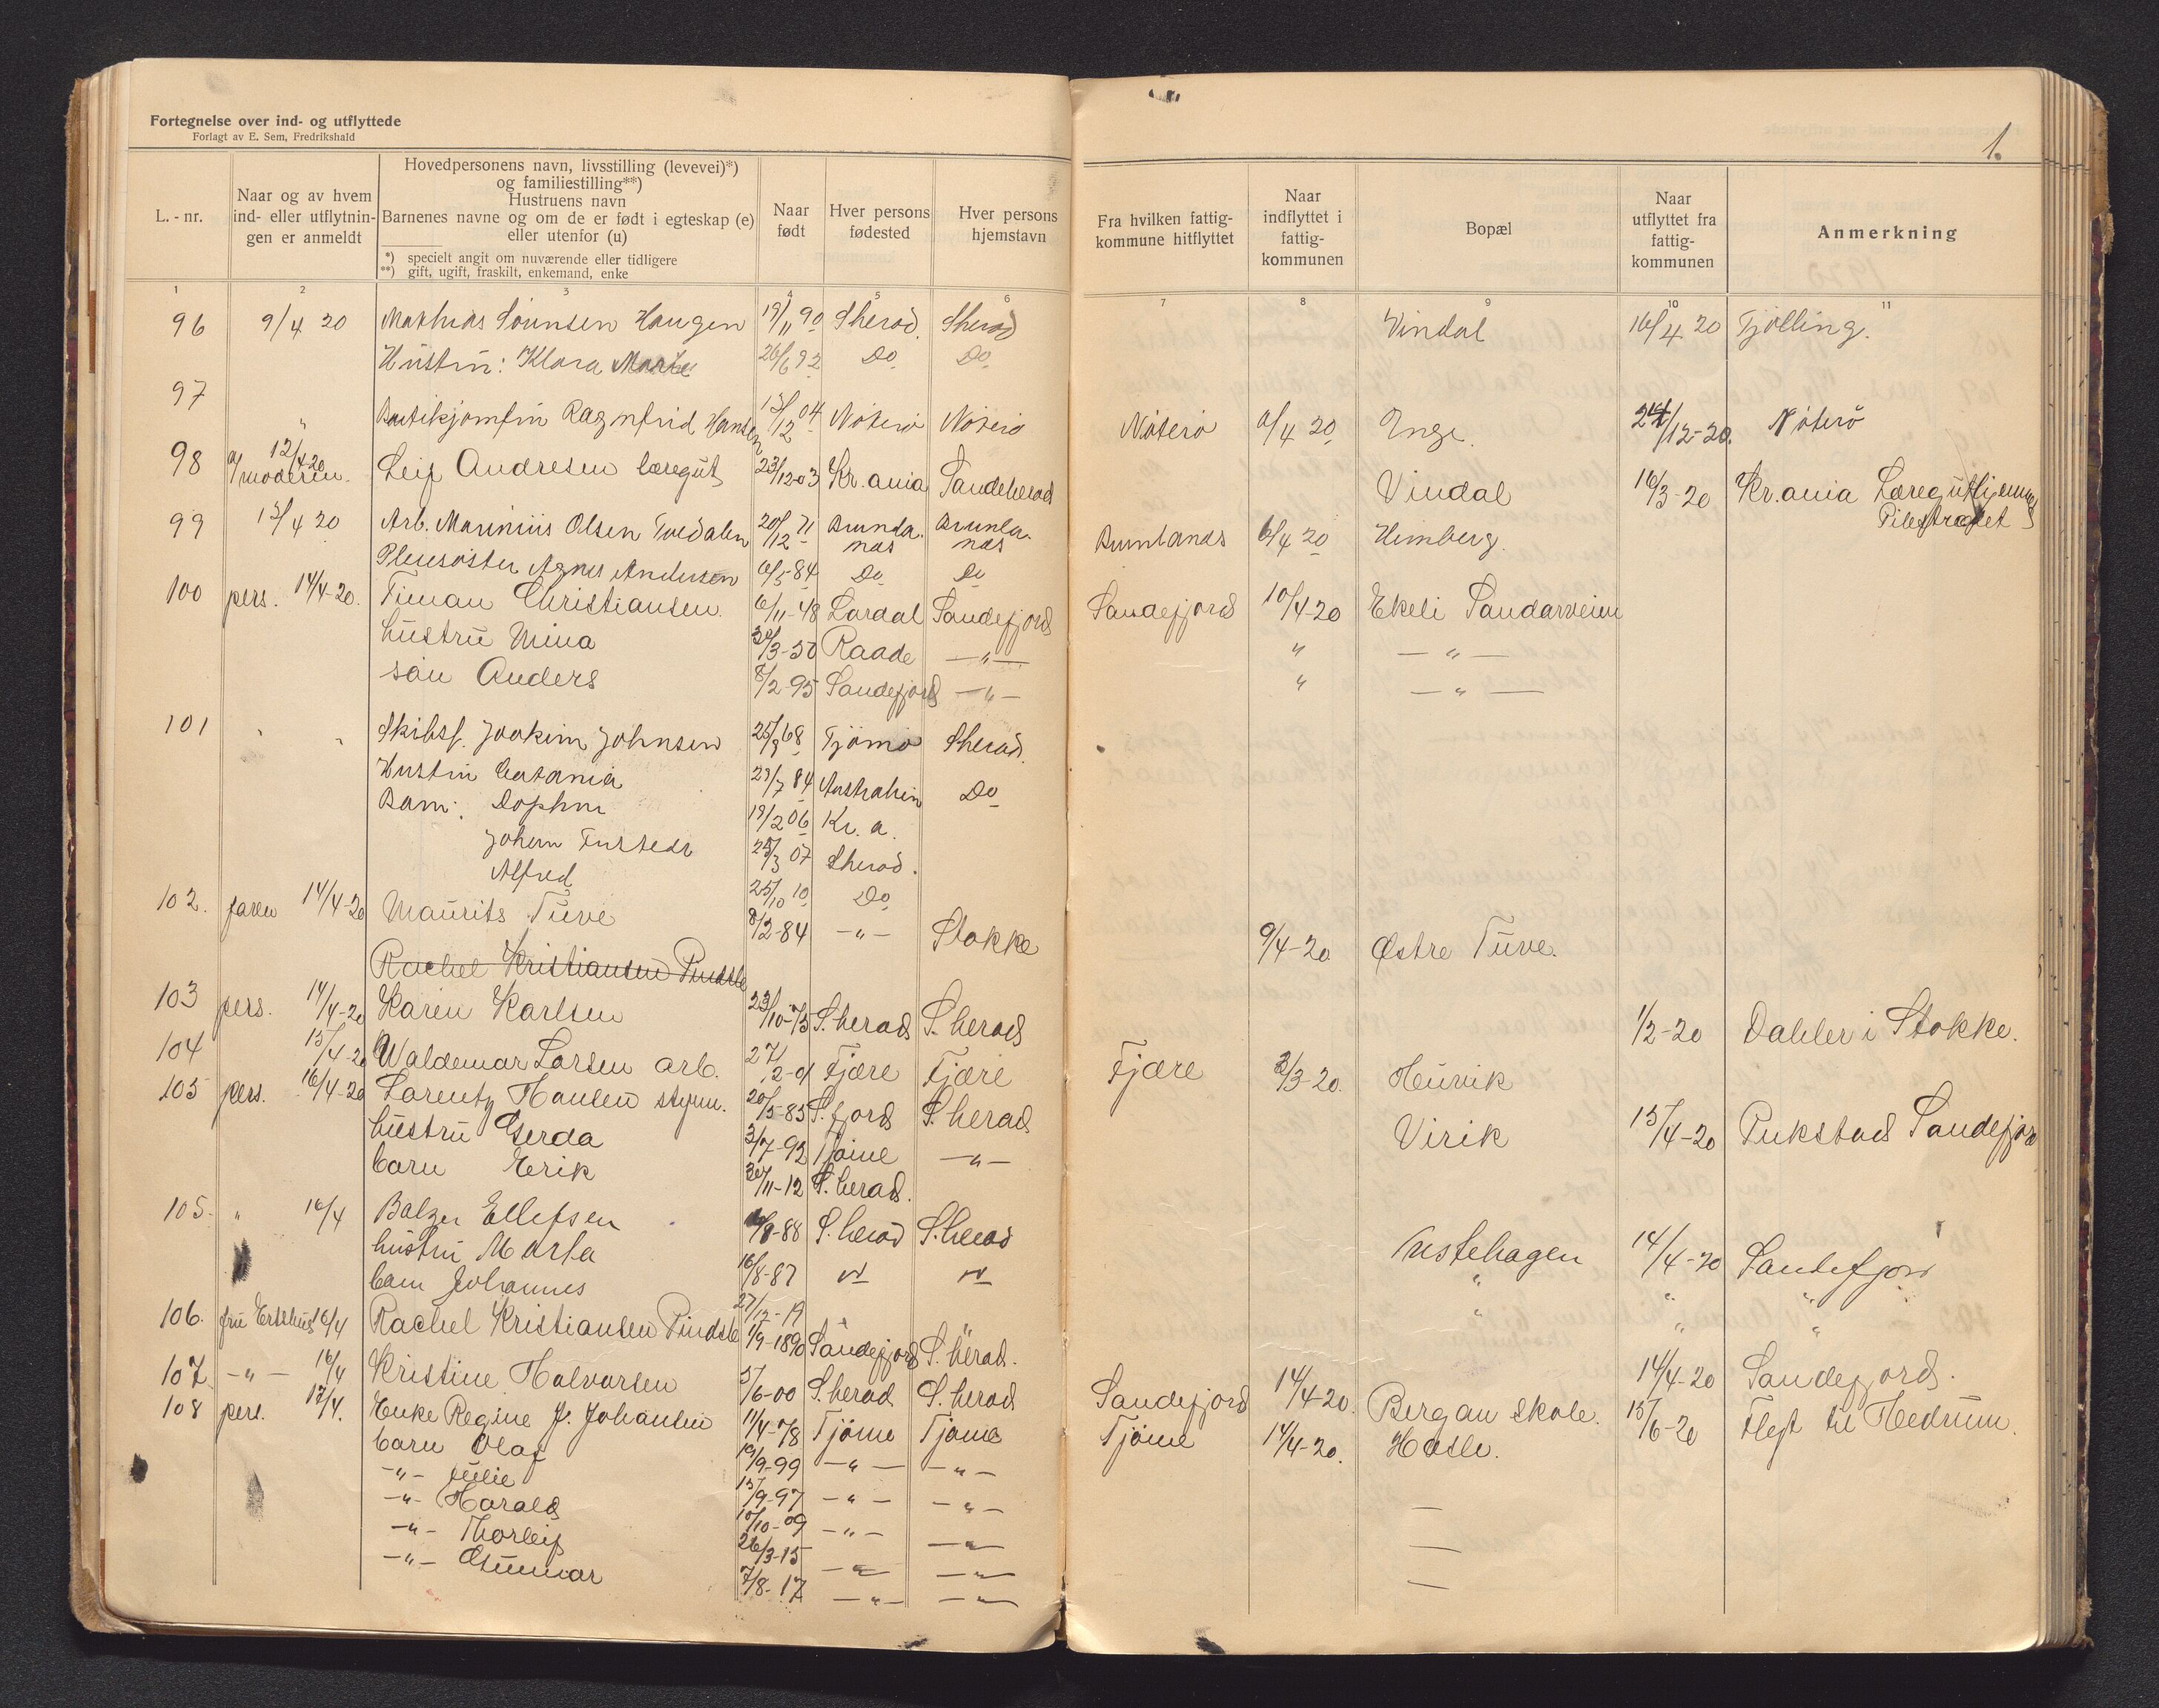 Fortegnelse over ind- og utflyttede
Forlagt av E. Sem, Fredrikshald
1.
L. - nr.
Naar og av hvem ind- eller utflytnin- gen er anmeldt
Hovedpersonens navn, livsstilling (levevei)*)
og familiestilling**)
Hustruens navn
Barnenes navne og om de er født i egteskap (e)
eller utenfor (u)
*) specielt angit om nuværende eller tidligere
**) gift, ugift, fraskilt, enkemand, enke
Naar født
Hver persons fødested
Hver persons hjemstavn
Fra hvilken fattig- kommune hitflyttet
Naar indflyttet i fattig- kommunen
Bopæl
Naar utflyttet fra fattig- kommunen
Anmerkning
1 2 3 4 5 6 7 8 9 10 11
96 9/4 20 Mathias Sörensen Haugen 19/11 90 Sherad Sherad Vindal 16/4 20 Tjölling.
Hustru: Klara Marie 26/6 92 Do Do
97 " Butikjomfru Ragnfrid Hansen 13/12 04 Nöterö Nöterö Nöterö 9/4 20 Unge. 24/12-20. Nöterö
98 12/4 20 af moderen. Leif Andresen læregut 23/12-03 Kr.ania Sandeherad Vindal 16/3-20 Kr.ania
Pilestrædet
99 13/4 20 Arb. Marinius Olsen Tvedalen 20/12 71 Brunlanes Brunlanes Brunlanes 6/4 20 Himberg.
Pleiesöster Agnes Andersen 6/5-84 Do Do
100 pers. 14/4-20. Timan Christiansen. 6/11-48 Lardal Sandefjord Sandefjord 10/4-20 Ekeli Sandarveien
hustru Mina 30/3-50 Raade —"— " —"—
sön Anders 8/2-95 Sandefjord —"— " —"—
101 " " Skibsf. Joakim Johnsen 25/9 68 Tjömö Sherad.
Hustru Catania 27/7 84 Australien Do
Barn: Dophne 19/2 06 Kr. a.
Johan Fursede 25/3 07 Sherad.
Alfred 25/10 10 Do
102. faren 14/4-20 Maurits Tuve 8/2-84 —"— Stokke 9/4-20 Østre Tuve.
Rachel Kristiansen Pindsle
103 pers. 14/4-20 Karen Karlsen 23/10-73 S.herad S.herad 1/2-20 Dahler i Stokke.
104 15/4-20 Waldemar Larsen arb. 27/2-01 Fjære Fjære Fjære 3/3-20. Huvik
105 pers. 16/4-20 Lorentz Hansen styrm. 20/5-85 S.fjord S.herad Virik 15/4-20 Pukstad Sandefjord
hustru Gerda 3/7-92 Tjöme —"—
barn Erik 30/11-12 S.herad.
105. " 16/4 Balzer Ellefsen 8-88 S.herad S.herad Nestehagen 14/4-20 Sandefjord
hustru Marta 16/8-87 " " " " "
barn Johannes 27/12-19 " " " " "
106. fru Ertshus 16/4 Rachel Kristiansen Pindsle 1/9-1890 Sandefjord S.herad. 14/4-20 Sandefjord.
107 —"— 16/4 Kristine Halvorsen 5/6-00 S.herad S.herad Sandefjord 14/4-20. Bergan skole. 15/6-20 Flyt til Hedrum.
108 pers. 17/4. Enke Regine J. Johansen 11/4-78 Tjöme Tjöme Tjöme 14/4-20. Hasle.
barn Olaf 19/9-99 —"— —"—
—"— Julie 15/9-97 —"— —"—
—"— Harald 10/10-09 —"— —"— —
—"— Thorleif 26/3-15 —"— —"— —
—"— Gunnar 7/8-17 —"— —"— —